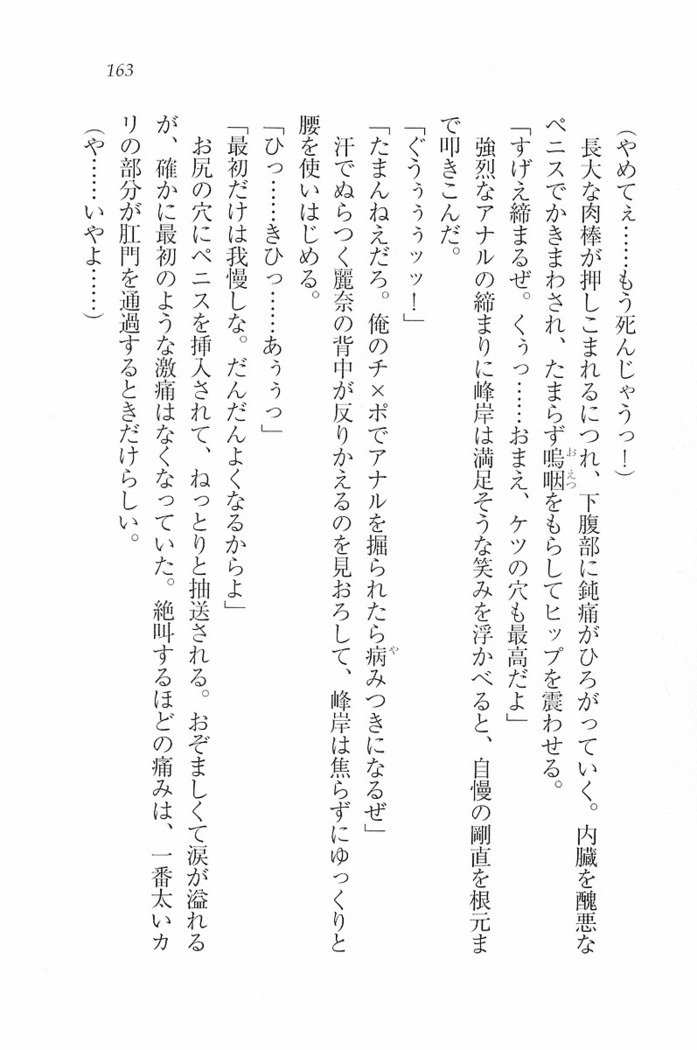 163
(やめてぇ……もう死んじゃうっ！)
長大な肉棒が押しこまれるにつれ、下腹部に鈍痛がひろがっていく。内臓を醜悪な
ペニスでかきまわされ、たまらず嗚咽をもらしてヒップを震わせる。
おえつ
「すげえ締まるぜ。くぅっ……おまえ、ケツの穴も最高だよ」
強烈なアナルの締まりに峰岸は満足そうな笑みを浮かべると、自慢の剛直を根元ま
で叩きこんだ。
「ぐうぅぅぅッッ！」
「たまんねえだろ。俺のチ×ポでアナルを掘られたら病みつきになるぜ」
や
汗でぬらつく麗奈の背中が反りかえるのを見おろして、峰岸は焦らずにゆっくりと
腰を使いはじめる。
「ひっ……きひっ……あぅぅっ」
「最初だけは我慢しな。だんだんよくなるからよ」
お尻の穴にペニスを挿入されて、ねっとりと抽送される。おぞましくて涙が溢れる
が、確かに最初のような激痛はなくなっていた。絶叫するほどの痛みは、一番太いカ
リの部分が肛門を通過するときだけらしい。
(や……いやよ……)